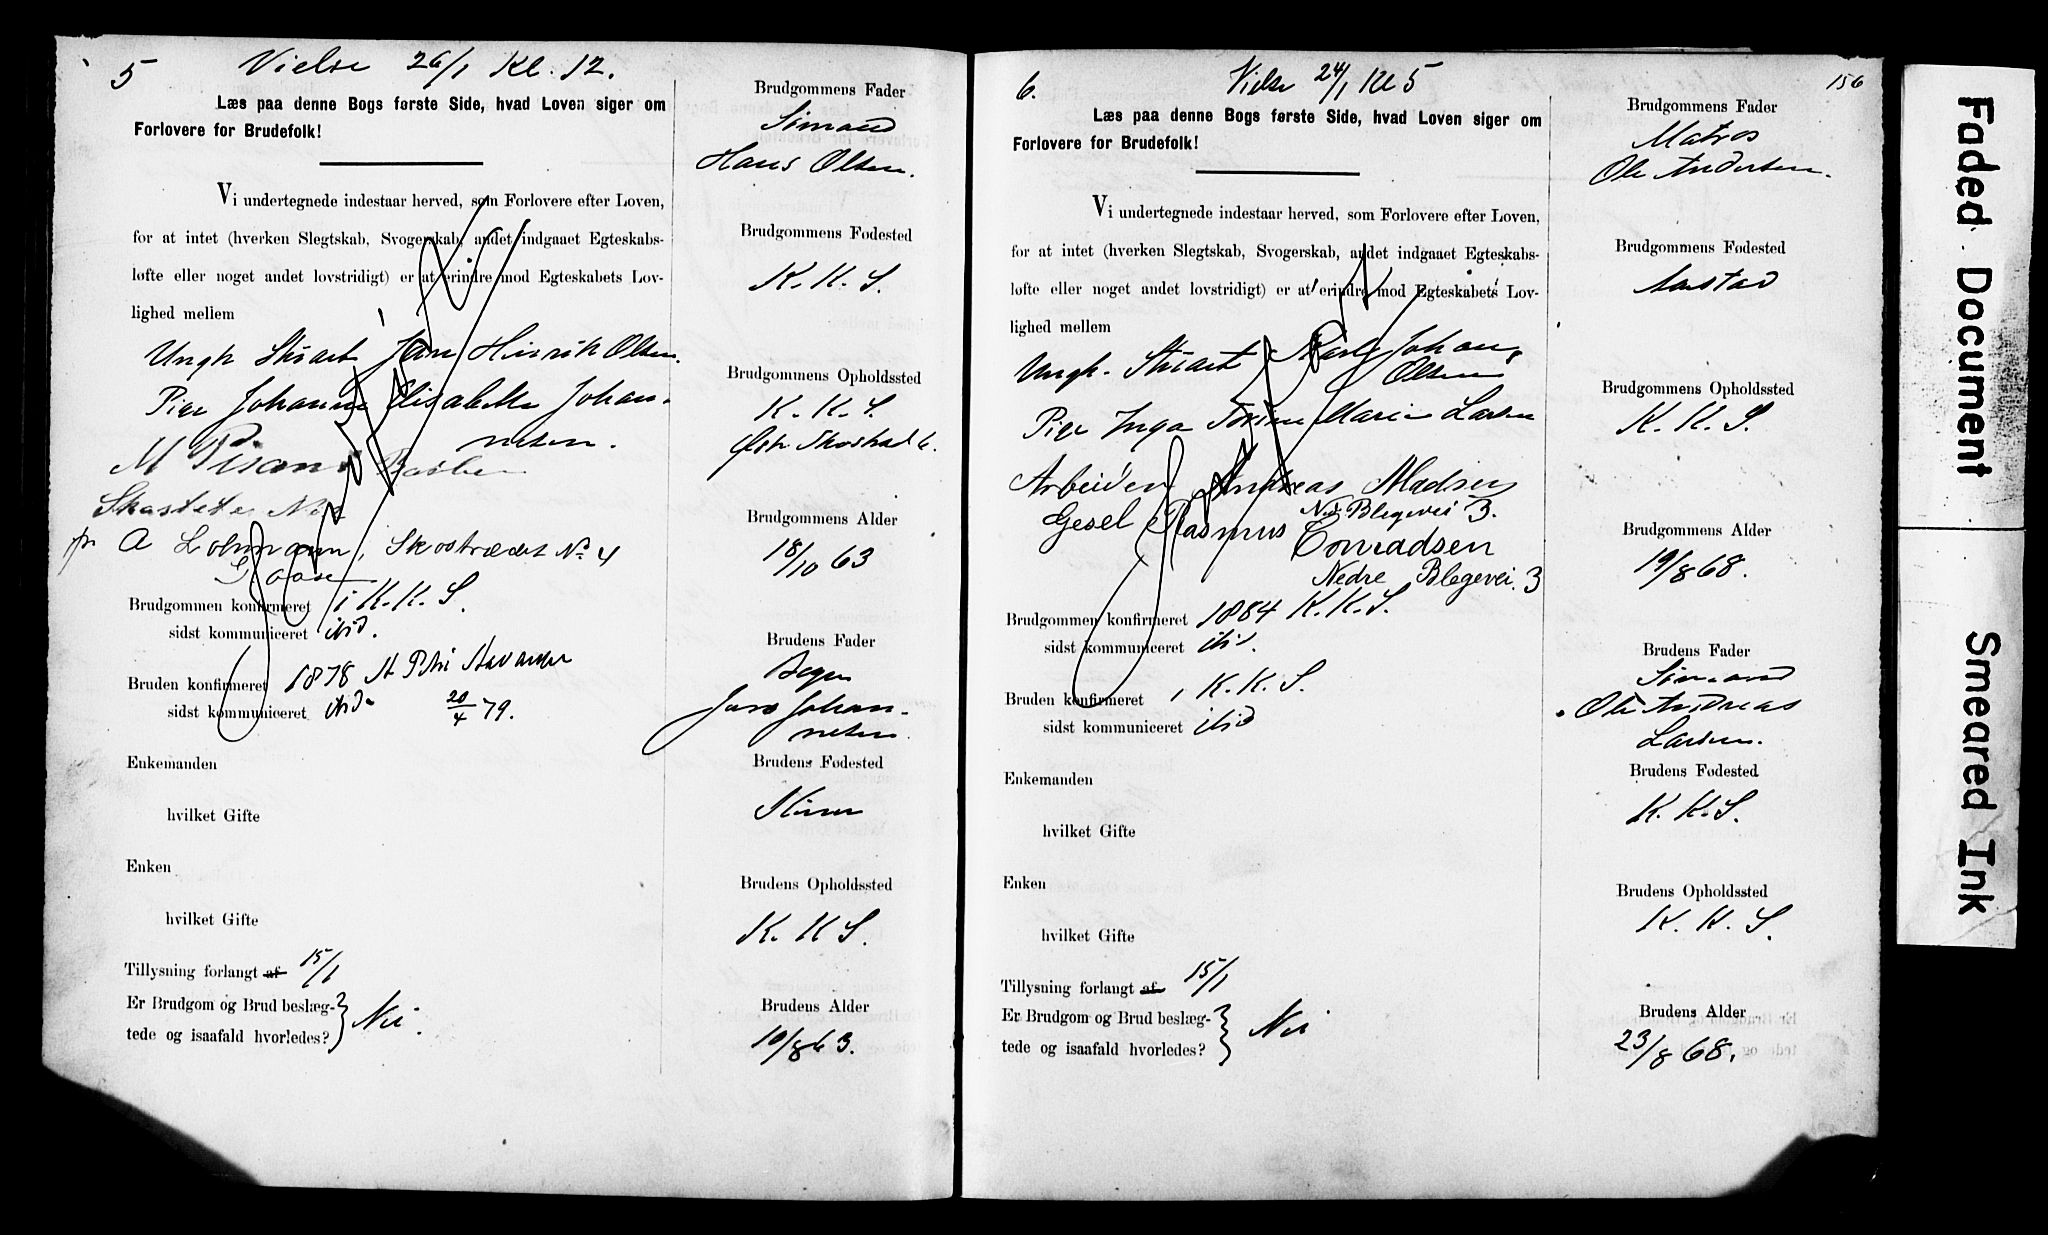 5
Vielse 26/1 Kl. 12.
Læs paa denne Bogs første Side, hvad Loven siger om
Forlovere for Brudefolk!
Vi undertegnede indestaar herved, som Forlovere efter Loven,
for at intet (hverken Slegtskab, Svogerskab, andet indgaaet Egteskabs-
løfte eller noget andet lovstridigt) er at erindre mod Egteskabets Lov-
lighed mellem
Ungk. Stuart Jan Hinrik Olsen.
Pige Johanne Elisabette Johan-
nesen.
M
A Lohmann, Skostrædet No 4
Brudgommen konfirmeret i K. K. S.
sidst kommuniceret ibid.
Bruden konfirmeret 1878 St Petri Stavanger
sidst kommuniceret ibid. 20/4 79.
Enkemanden
hvilket Gifte
Enken
hvilket Gifte
Tillysning forlangt af 15/1
Er Brudgom og Brud beslæg-
tede og isaafald hvorledes? Nei.
Brudgommens Fader
Sømand
Hans Olsen.
Brudgommens Fødested
K. K. S.
Brudgommens Opholdssted
K. K. S.
Brudgommens Alder
18/10 63
Brudens Fader
Johan-
nesen.
Brudens Fødested
Brudens Opholdssted
K. K S.
Brudens Alder
10/8 63.
6.
Vielse 24/1 Kl 5
156
Læs paa denne Bogs første Side, hvad Loven siger om
Forlovere for Brudefolk!
Vi undertegnede indestaar herved, som Forlovere efter Loven,
for at intet (hverken Slegtskab, Svogerskab, andet indgaaet Egteskabs-
løfte eller noget andet lovstridigt) er at erindre mod Egteskabets Lov-
lighed mellem
Ungk. Stuart Karl Johan
Olsen
Pige Inga Marie Larsen
Arbeider Andreas Madsen
Ned. Blegevei 3.
Gesel Rasmus Conradsen
Nedre Blegevei. 3
Brudgommen konfirmeret 1884 K. K. S.
sidst kommuniceret ibid.
Bruden konfirmeret i K. K. S.
sidst kommuniceret ibid
Enkemanden
hvilket Gifte
Enken
hvilket Gifte
Tillysning forlangt af 15/1
Er Brudgom og Brud beslæg-
tede og isaafald hvorledes? Nei
Brudgommens Fader
Matros
Ole Andersen.
Brudgommens Fødested
Brudgommens Opholdssted
K. K. S.
Brudgommens Alder
19/8 68.
Brudens Fader
Sømand
Ole Andreas
Larsen.
Brudens Fødested
K. K. S.
Brudens Opholdssted
K. K. S.
Brudens Alder
23/8 68.
Faded Document
Smeared Ink